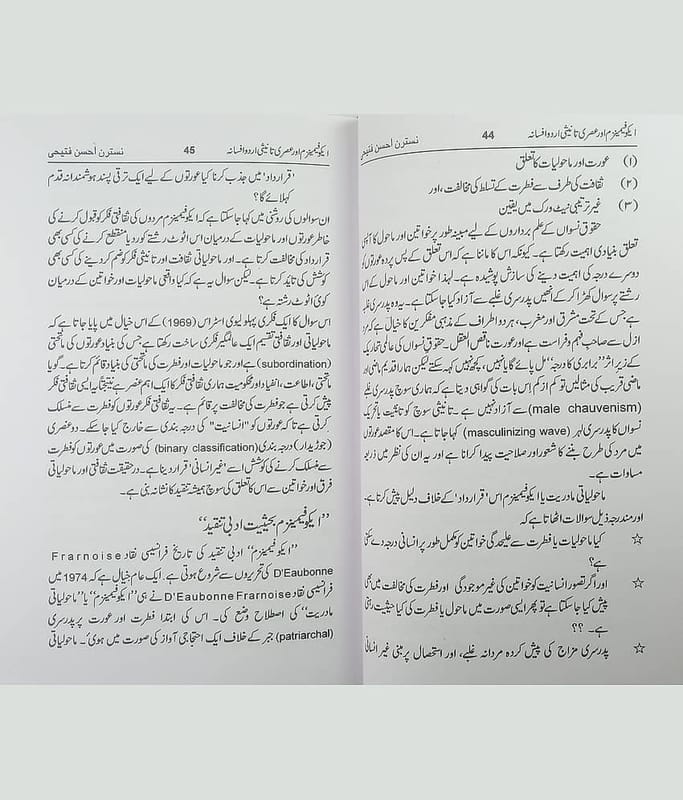 ایکوفیمینزم اور عصری تانیثی اردو افسانہ 44 نسترن احسن فتیحی
(۱) عورت اور ماحولیات کا تعلق
(۲) ثقافت کی طرف سے فطرت کے تسلط کی مخالفت، اور
(۳) غیر ترتیبی نیٹ ورک میں یقین
حقوق نسواں کے علم برداروں کے لیے مبینہ طور پر خواتین اور ماحول کا آپسی
تعلق بنیادی اہمیت رکھتا ہے۔ کیونکہ اس کا ماننا ہے کہ اس تعلق کے پس پردہ عورتوں کو
دوسرے درجہ کی اہمیت دینے کی سازش پوشیدہ ہے۔ لہٰذا خواتین اور ماحول کے اس
رشتے پر سوال کھڑا کر کے انھیں پدرسری غلبے سے آزاد کیا جا سکتا ہے۔ یہ وہ پدرسری غلبہ
ہے جس کے تحت مشرق اور مغرب، ہر دو اطراف کے مذہبی مفکرین کا خیال ہے کہ مرد
ازل سے صاحب فہم و فراست ہے اور عورت ناقص العقل۔ حقوق نسواں کی عالمی تحاریک
کے زیر اثر "برابری کا درجہ" مل پائے گا یا نہیں، کچھ نہیں کہہ سکتے لیکن ہمارا قدیم ماضی اور
ماضی قریب کی مثالیں تو کم از کم اس بات کی گواہی دیتا ہے کہ ہماری سوچ پدرسری غلبے
(male chauvenism) سے آزاد نہیں ہے۔ تانیثی سوچ کو تانیثیت یا تحریک
نسواں کا پدرسری لہر (masculinizing wave) کہا جاتا ہے۔ اس کا مقصد عورتوں
میں مرد کی طرح بننے کا شعور اور صلاحیت پیدا کرانا ہے اور یہ ان کی نظر میں ذریعہ
مساوات ہے۔
ماحولیاتی مادریت یا ایکوفیمینزم اس 'قرارداد' کے خلاف دلیل پیش کرتا ہے۔
اور مندرجہ ذیل سوالات اٹھاتا ہے کہ
☆ کیا ماحولیات یا فطرت سے علیحدگی خواتین کو مکمل طور پر انسانی درجہ دے سکتی
ہے؟
☆ اور اگر تصور انسانیت کو خواتین کی غیر موجودگی اور فطرت کی مخالفت میں بھی
پیش کیا جا سکتا ہے تو پھر ایسی صورت میں ماحول یا فطرت کی کیا حیثیت رہتی
ہے۔ ؟؟
☆ پدرسری مزاج کی پیش کردہ مردانہ غلبے، اور استحصال پر مبنی غیر انسانی
ایکوفیمینزم اور عصری تانیثی اردو افسانہ 45 نسترن احسن فتیحی
'قرارداد' میں جذب کرنا کیا عورتوں کے لیے ایک ترقی پسند ہوشمندانہ قدم
کہلائے گا؟
ان سوالوں کی روشنی میں کہا جا سکتا ہے کہ ایکوفیمینزم مردوں کی ثقافتی فکر کو قبول کرنے کی
خاطر عورتوں اور ماحولیات کے درمیان اس اٹوٹ رشتے کو رد یا منقطع کرنے کی کسی بھی
قرارداد کی مخالفت کرتا ہے۔ اور ماحولیاتی ثقافت اور تانیثی فکر کو ضم کر دینے کی کسی بھی
کوشش کی تائید کرتا ہے۔ لیکن سوال یہ ہے کہ کیا واقعی ماحولیات اور خواتین کے درمیان
کوئی اٹوٹ رشتہ ہے؟
اس سوال کا ایک فکری پہلو لیوی اسٹراس (1969) کے اس خیال میں پایا جاتا ہے کہ
ماحولیاتی اور ثقافتی تقسیم ایک عالمگیر فکری ساخت رکھتا ہے جس کی بنیاد عورتوں کی ماتحتی
(subordination) ہے اور جو ماحولیات اور فطرت کی ماتحتی کی بنیاد قائم کرتا ہے۔ گویا
ماتحتی، اطاعت، انقیاد اور محکومیت ہماری ثقافتی فکر کا ایک اہم عنصر ہے نتیجتاً یہ ایسی ثقافتی فکر
پیش کرتی ہے جو فطرت کی مخالفت پر قائم ہے۔ یہ ثقافتی فکر عورتوں کو فطرت سے منسلک
کرتی ہے تا کہ عورتوں کو "انسانیت" کی درجہ بندی سے خارج کیا جا سکے۔ دو عنصری
(جوڑیدار) درجہ بندی (binary classification) کی صورت میں عورتوں کو فطرت
سے منسلک کرنے کی کوشش اسے 'غیر انسانی' قرار دینا ہے۔ در حقیقت ثقافتی اور ماحولیاتی
فرق اور خواتین سے اس کا تعلق کی سوچ ہمیشہ تنقید کا نشانہ بنی ہے۔
"ایکوفیمینزم بحیثیت ادبی تنقید"
"ایکوفیمینزم" ادبی تنقید کی تاریخ فرانسیسی نقاد Frarnoise
D'Eaubonne کی تحریروں سے شروع ہوتی ہے۔ ایک عام خیال ہے کہ 1974 میں
فرانسیسی نقاد D'Eaubonne Frarnoise نے ہی "ایکوفیمینزم" یا "ماحولیاتی
مادریت" کی اصطلاح وضع کی۔ اس کی ابتدا فطرت اور عورت پر پدرسری
(patriarchal) جبر کے خلاف ایک احتجاجی آواز کی صورت میں ہوئی۔ ماحولیاتی